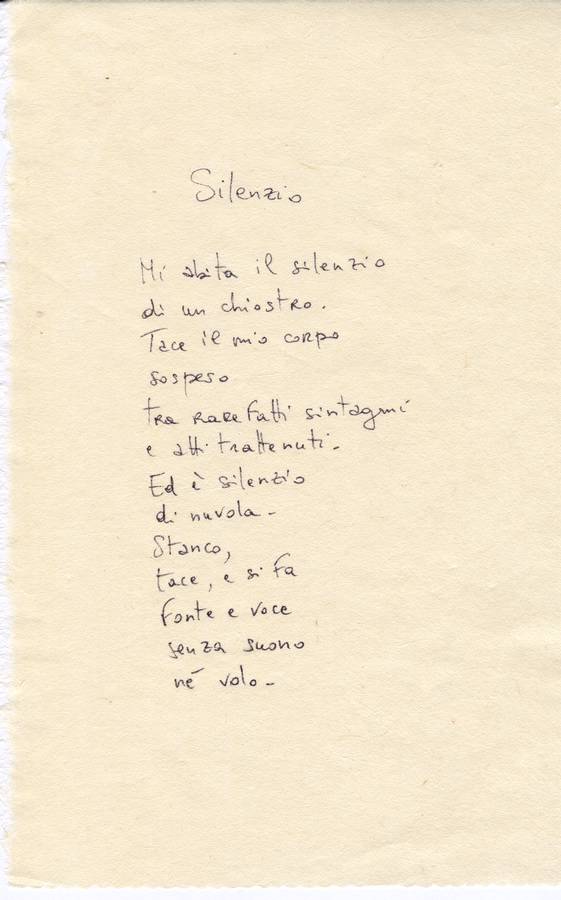 Silenzio
Mi abita il silenzio
di un chiostro.
Tace il mio corpo
sospeso
tra rarefatti sintagmi
e atti trattenuti-
Ed è silenzio
di nuvola-
Stanco,
tace, e si fa
fonte e voce
senza suono
né volo-